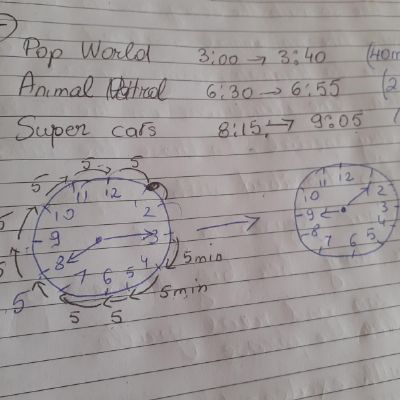 Pop World 3:00 → 3:40 (40m
Animal 6:30 → 6:55 (2
Super cars 8:15 → 9:05 (
5 5 5
11 12
10 2
9 3
8 4
7 6 5
5 5 5 5
5min
5min
5 5
11 12
10 2
9 3
8 4
7 6 5